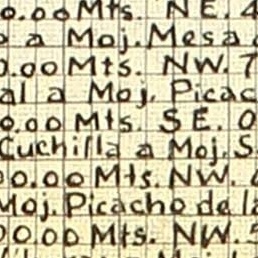 0.00 Mts. NE. 4
a Moj. Mesa
0.00 Mts. NW. 7
al a Moj. Picac
0.00 Mts. SE. 0
Cuchilla a Moj. S
00.00 Mts. NW.
Moj. Picacho de la
00.00 Mts. NW. 5